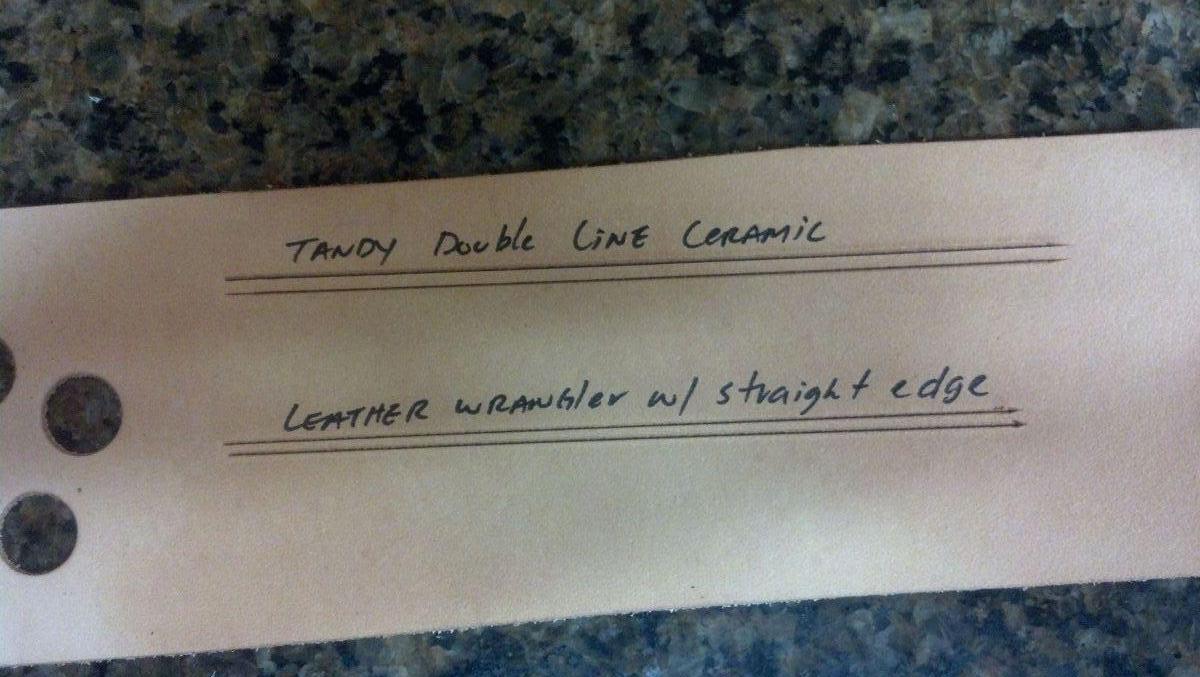 TANDY Double LiNE CeRAMiC
LEATHER WRANGler w/ straight edge